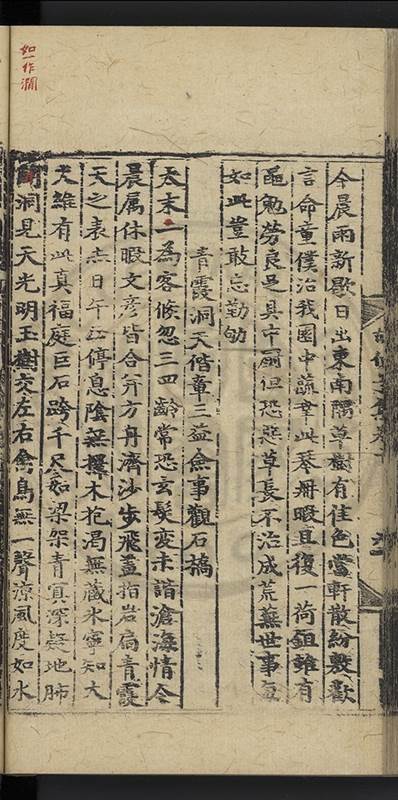 如一作澗
今晨雨新歇日出東南隅草樹有佳色當軒散紛敷歡
言命童僕治我園中蔬棄此琴冊暇且復一荷鉏雖有
黽勉勞良足具中廚但恐惡草長不治成荒蕪世事每
如此豈敢忘勤劬
青霞洞天偕章三益僉事觀石橋
太末一為客倏忽三四齡常恐玄髮變未諧滄海情今
晨属休暇文彦皆合并方舟濟沙步飛蓋指岩扃青霞
天之表赤日午正停息陰無擇木抱渴無藏氷寧知大
人雄有此真福庭巨石跨千尺如梁架青真深疑地肺
洞見天光明玉樹交左右禽鳥無一聲涼風度如水